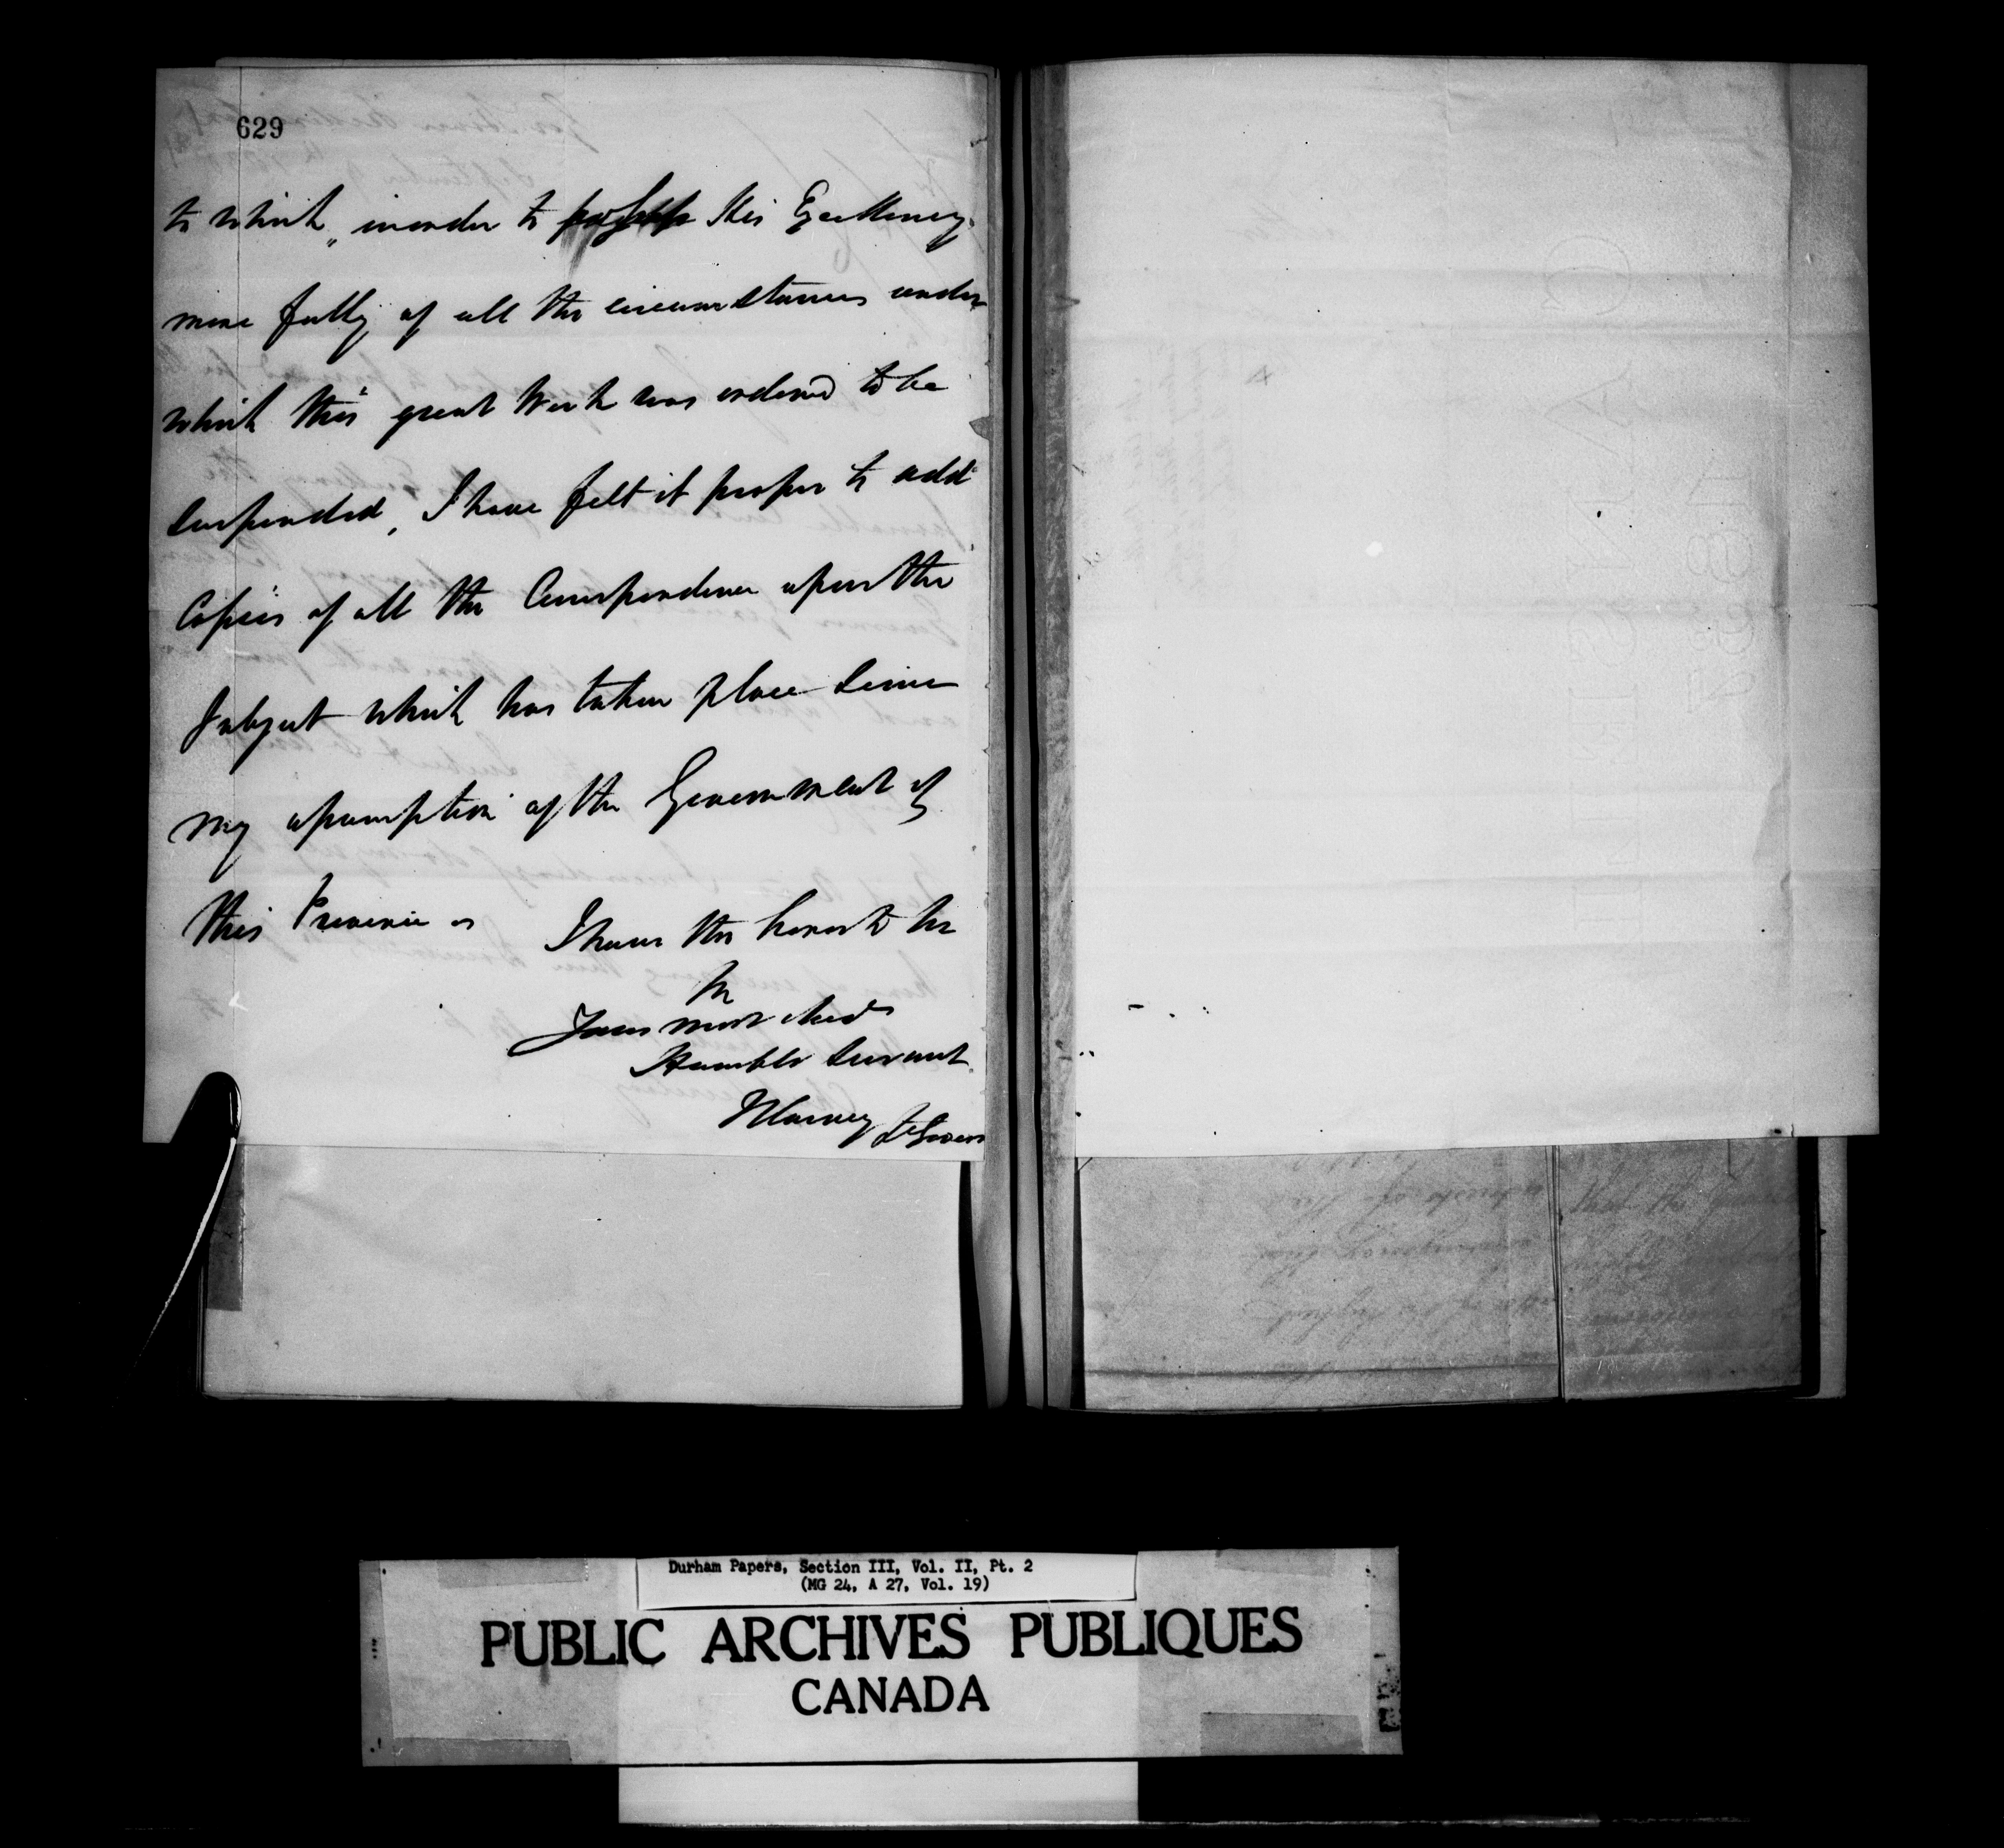 629
to which, in order to His Excellency
more fully of all the circumstances under
which this great Work was ordered to be
suspended, I have felt it proper to add
Copies of all the Correspondence upon the
Subject which has taken place since
my assumption of the Government of
this Province
I have the honor to be
Sir
Your most obed
Humble Servant
JHarvey Lt Govern
Durham Papers, Section III, Vol. II, Pt. 2
(MG 24, A 27, Vol. 19)
PUBLIC ARCHIVES PUBLIQUES
CANADA